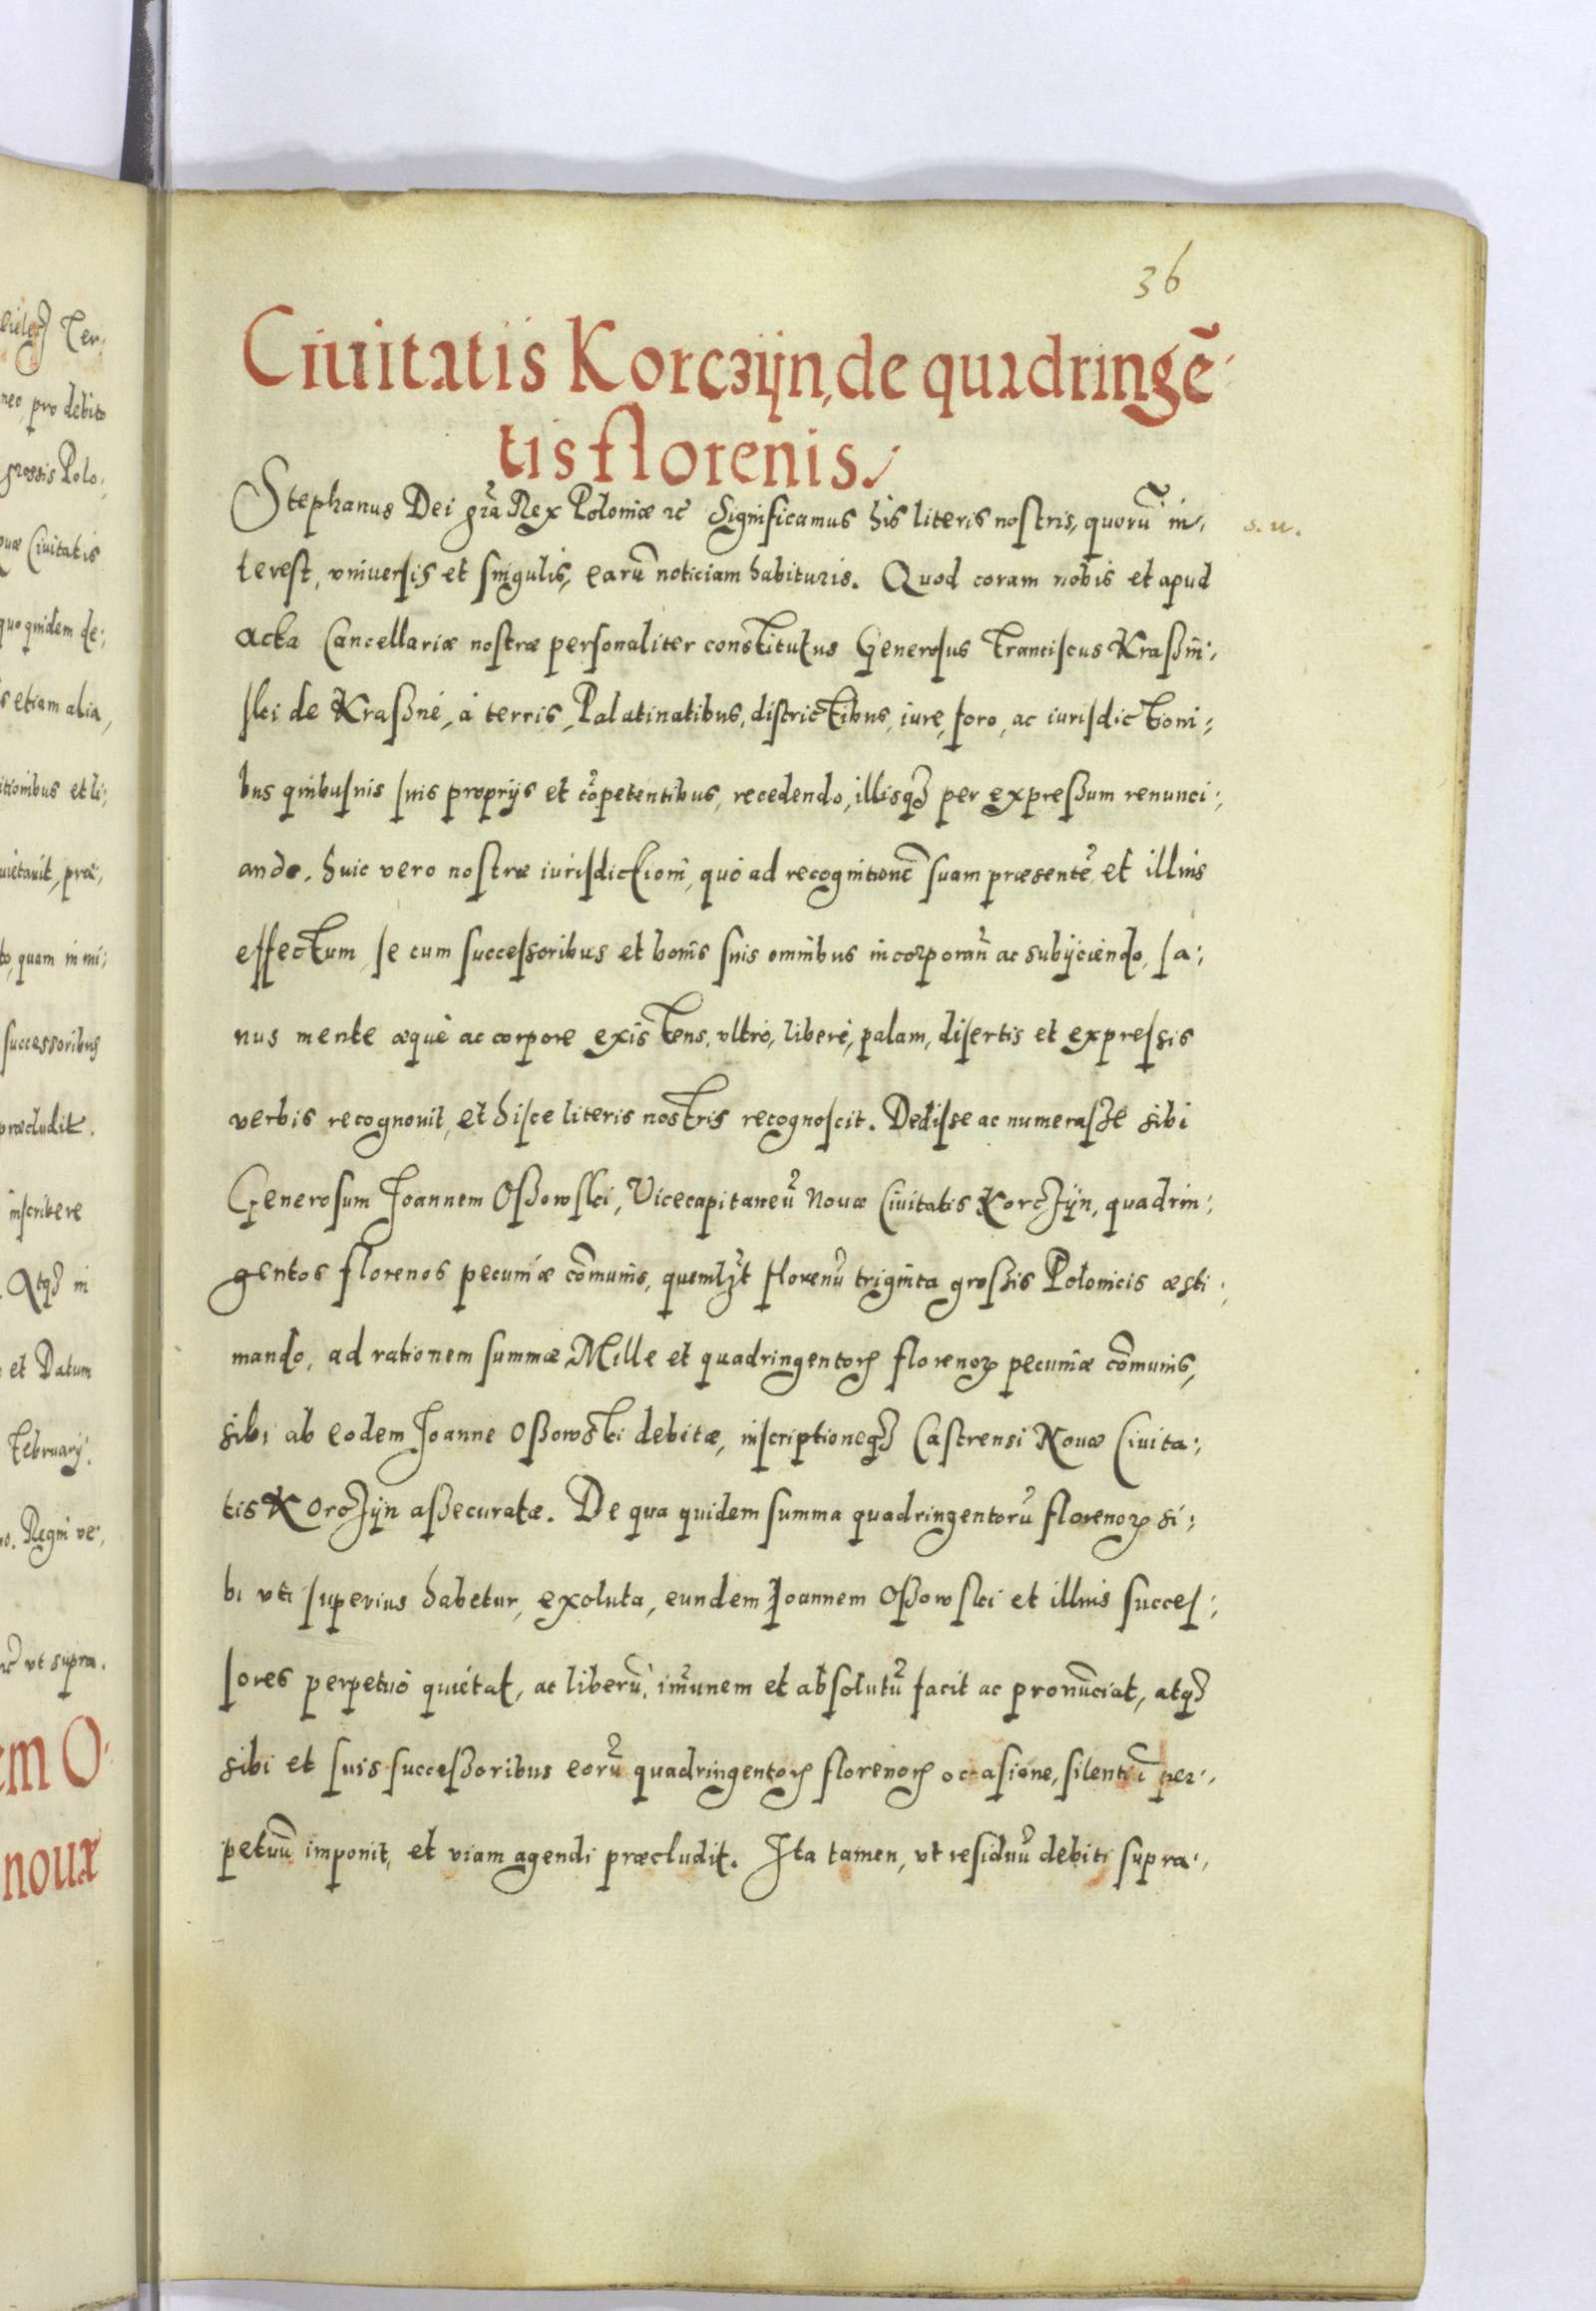 36
Ciuitatis Korczijn, de quadringẽ⸗
tis florenis.
Stephanus Dei gr̃a Rex Poloniæ ꝛc̃ Significamus his literis nostris, quorũ in⸗ s. u.
terest, vniuersis et singulis, earũ noticiam habituris. Quod coram nobis et apud
acta Cancellariæ nostræ personaliter constitutus Generosus Franciscus Kraßiñ⸗
ski de Kraßne, à terris, Palatinatibus, districtibus, iure, foro, ac iurisdictioni⸗
bus quibusuis suis proprijs et cõpetentibus, recedendo, illisqꝫ per expreßum renunci⸗
ando, huic vero nostræ iurisdictioni, quò ad recognitionẽ suam præsentẽ, et illius
effectum, se cum successoribus et bonis suis omnibus incorporan̄ ac subijciendo, sa⸗
nus mente æquè ac corpore existens, vltrò, liberè, palam, disertis et expressis
verbis recognouit, et hisce literis nostris recognoscit. Dedisse ac numerasse sibi
Generosum Joannem Oßowski, Vicecapitaneũ Nouæ Ciuitatis Korczijn, quadrin⸗
gentos florenos pecuniæ cõmunis, quemlꝫt florenũ triginta großis Polonicis æsti⸗
mando, ad rationem summæ Mille et quadringentoꝝ florenoꝝ pecuniæ cõmunis,
sibi ab eodem Joanne Oßowski debitæ, inscriptioneqꝫ Castrensi Nouæ Ciuita⸗
tis Korczijn aßecuratæ. De qua quidem summa quadringentorũ florenoꝝ si⸗
bi vti superius habetur, exoluta, eundem Joannem Oßowski et illius succes⸗
sores perpetuò quietat, ac liberũ, im̃unem et absolutũ facit ac pronũciat, atqꝫ
sibi et suis succeßoribus eorũ quadringentoꝝ florenoꝝ occasione, silentiũ per⸗
petuũ imponit, et viam agendi præcludit. Ita tamen, vt residuũ debiti supra⸗